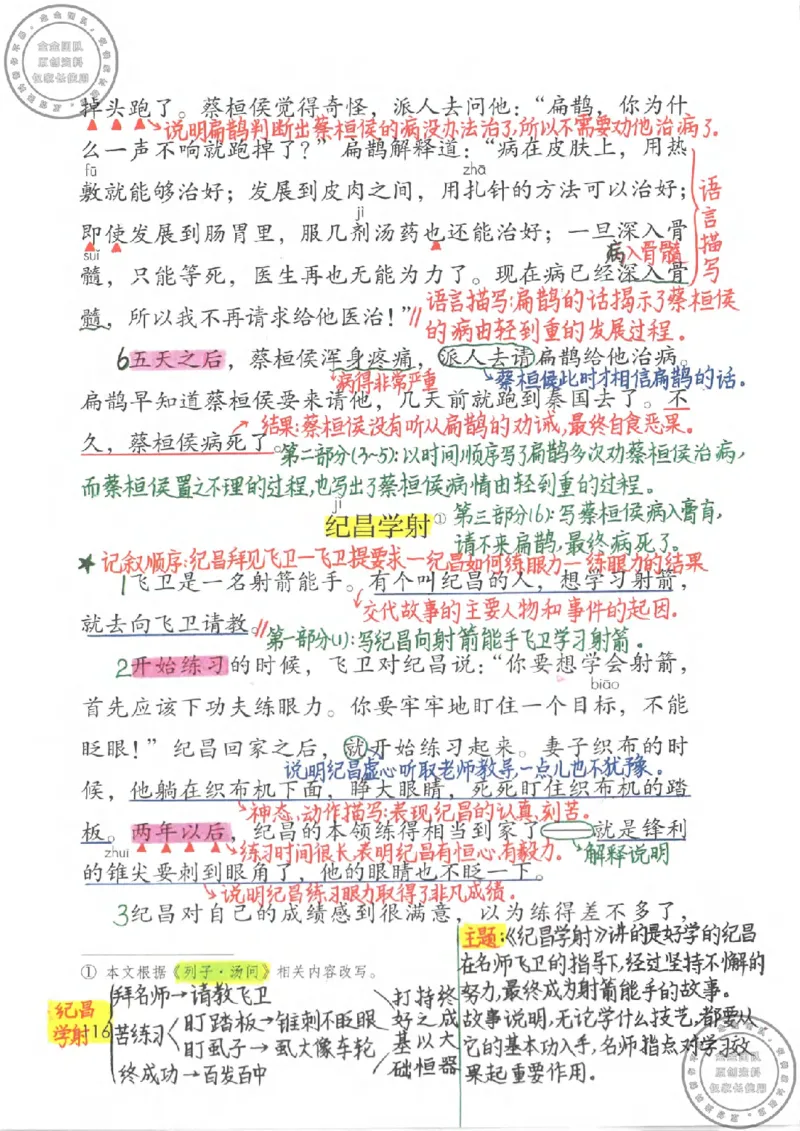 金金团队
原创资料
仅家长使用
掉头跑了。蔡桓侯觉得奇怪，派人去问他：“扁鹊，你为什
说明扁鹊判断出蔡桓侯的病没办法治了,所以不需要劝他治病了。
么一声不响就跑掉了？”扁鹊解释道：“病在皮肤上，用热
fū zhā
敷就能够治好；发展到皮肉之间，用扎针的方法可以治好；
语言描写
jì
即使发展到肠胃里，服几剂汤药也还能治好；一旦深入骨
suǐ
病入骨髓
髓，只能等死，医生再也无能为力了。现在病已经深入骨
语言描写:扁鹊的话揭示了蔡桓侯
髓，所以我不再请求给他医治！”
的病由轻到重的发展过程。
6五天之后，蔡桓侯浑身疼痛，派人去请扁鹊给他治病。
病得非常严重
蔡桓侯此时才相信扁鹊的话。
扁鹊早知道蔡桓侯要来请他，几天前就跑到秦国去了。不
结果:蔡桓侯没有听从扁鹊的劝诫,最终自食恶果。
久，蔡桓侯病死了。
第二部分(3~5):以时间顺序写了扁鹊多次劝蔡桓侯治病,
而蔡桓侯置之不理的过程,也写出了蔡桓侯病情由轻到重的过程。
jǐ
纪昌学射①
第三部分(6):写蔡桓侯病入膏肓,
请不来扁鹊,最终病死了。
★记叙顺序:纪昌拜见飞卫—飞卫提要求—纪昌如何练眼力—练眼力的结果
1飞卫是一名射箭能手。有个叫纪昌的人，想学习射箭，
交代故事的主要人物和事件的起因。
就去向飞卫请教。
第一部分(1):写纪昌向射箭能手飞卫学习射箭。
2开始练习的时候，飞卫对纪昌说：“你要想学会射箭，
biāo
首先应该下功夫练眼力。你要牢牢地盯住一个目标，不能
眨眼！”纪昌回家之后，就开始练习起来。妻子织布的时
说明纪昌虚心听取老师教导,一点儿也不犹豫。
候，他躺在织布机下面，睁大眼睛，死死盯住织布机的踏
神态、动作描写:表现纪昌的认真、刻苦。
板。两年以后，纪昌的本领练得相当到家了——就是锋利
zhuī
练习时间很长,表明纪昌有恒心、有毅力。
解释说明
的锥尖要刺到眼角了，他的眼睛也不眨一下。
说明纪昌练习眼力取得了非凡成绩。
3纪昌对自己的成绩感到很满意，以为练得差不多了，
① 本文根据《列子·汤问》相关内容改写。
纪昌
学射
拜名师→请教飞卫
苦练习
盯踏板→锥刺不眨眼
盯虱子→虱大像车轮
终成功→百发百中
打好基础
持之以恒
终成大器
16
主题:《纪昌学射》讲的是好学的纪昌
在名师飞卫的指导下,经过坚持不懈的
努力,最终成为射箭能手的故事。
故事说明,无论学什么技艺,都要从
它的基本功入手,名师指点对学习效
果起重要作用。
金金团队
原创资料
仅家长使用